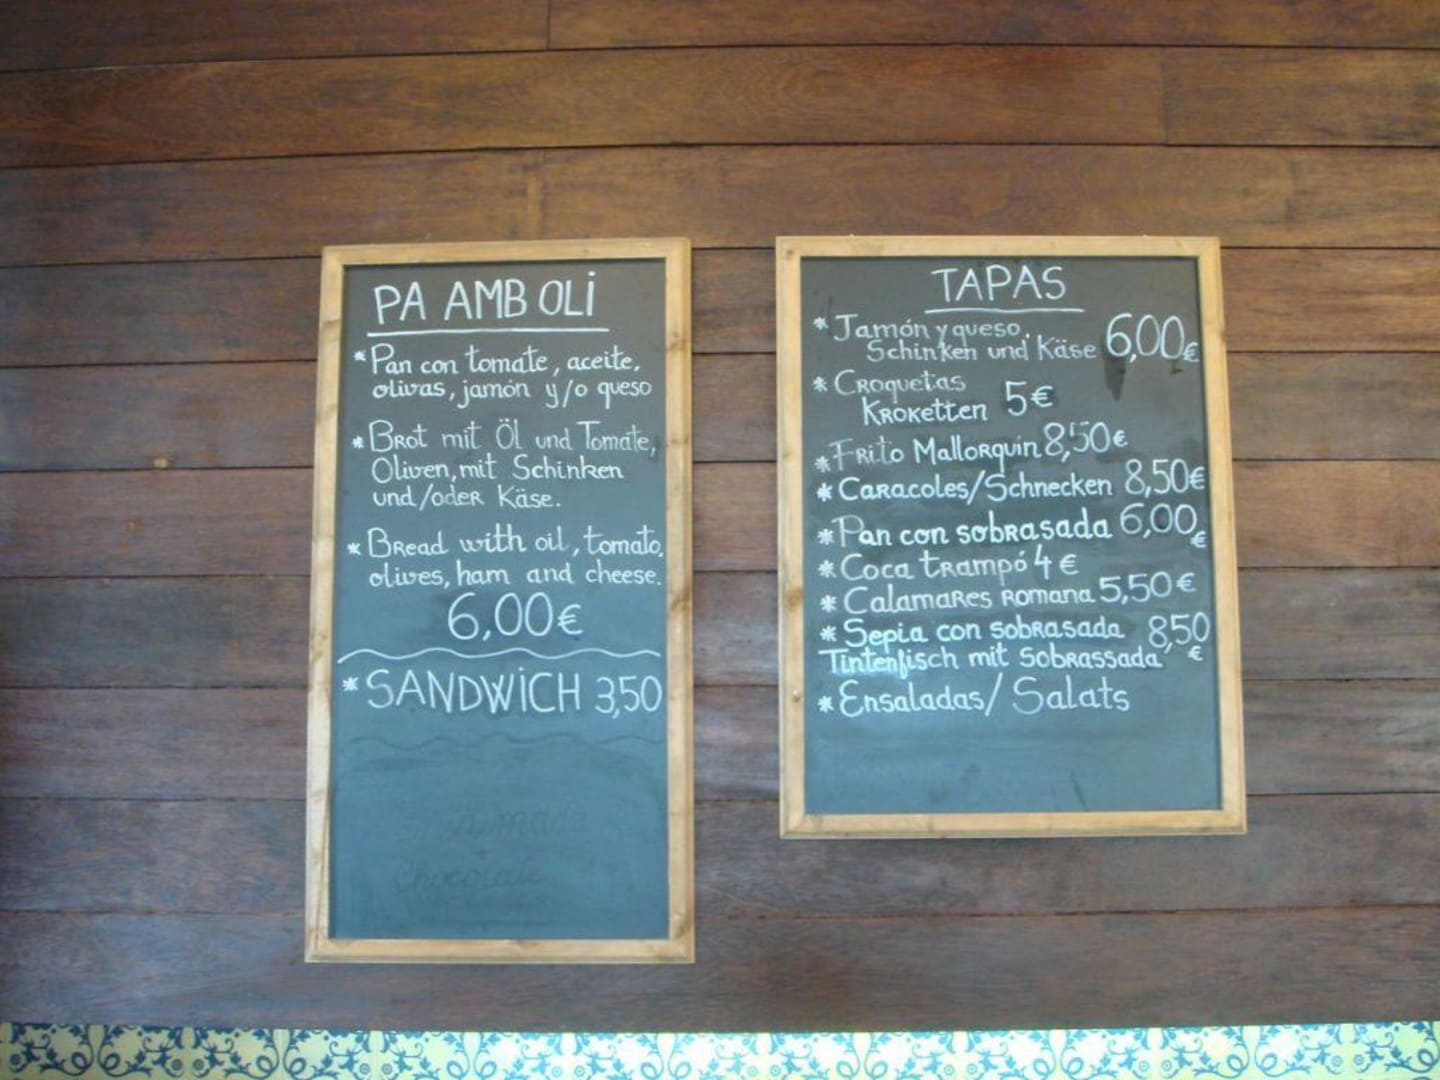 PA AMB OLi
* Pan con tomate, aceite,
olivas, jamón y/o queso
* Brot mit Öl und Tomate,
Oliven, mit Schinken
und/oder Käse.
* Bread with oil, tomato,
olives, ham and cheese.
6,00€
* SANDWiCH 3,50
Chocolate
TAPAS
* Jamón y queso.
Schinken und Käse 6,00€
* Croquetas
Kroketten 5€
* Frito Mallorquin 8,50€
* Caracoles/Schnecken 8,50€
* Pan con sobrasada 6,00€
* Coca trampó 4€
* Calamares Romana 5,50€
* Sepia con sobrasada 8,50
Tintenfisch mit Sobrassada €
* Ensaladas/Salats